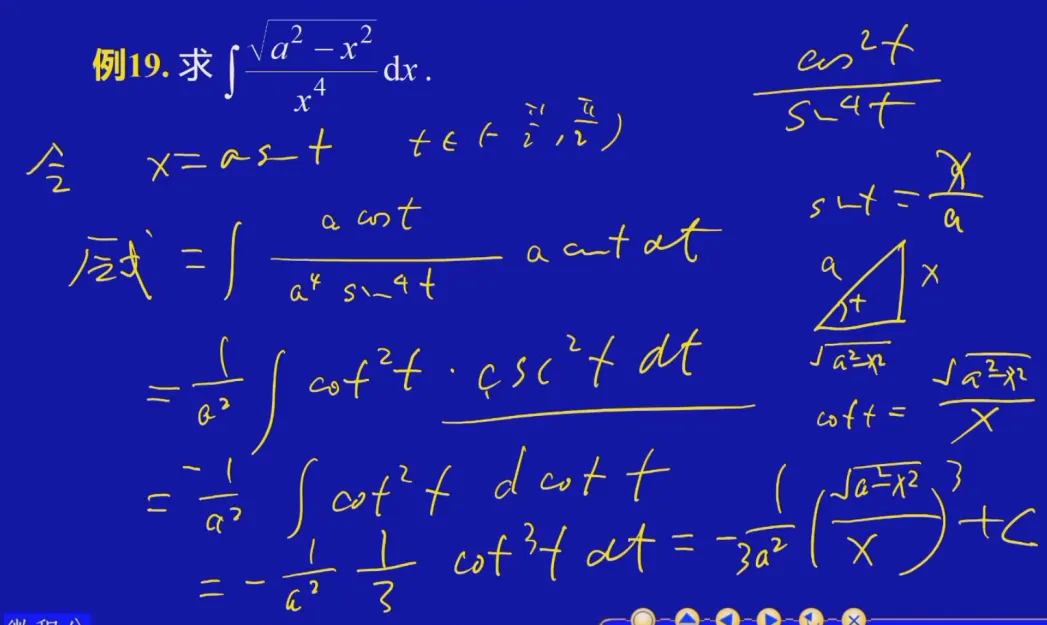 例19. 求 ∫ √(a² − x²) / x⁴ dx.
cos²t / sin⁴t
令 x = a sin t   t ∈ (−π/2, π/2)
sin t = x/a
原式 = ∫ a cos t / (a⁴ sin⁴ t) a cos t dt
a x t
√(a²−x²)
= 1/a² ∫ cot² t · csc² t dt
cot t = √(a²−x²) / x
= −1/a² ∫ cot² t d cot t
= − 1/a² 1/3 cot³ t dt = − 1/(3a²) (√(a²−x²) / x)³ + C